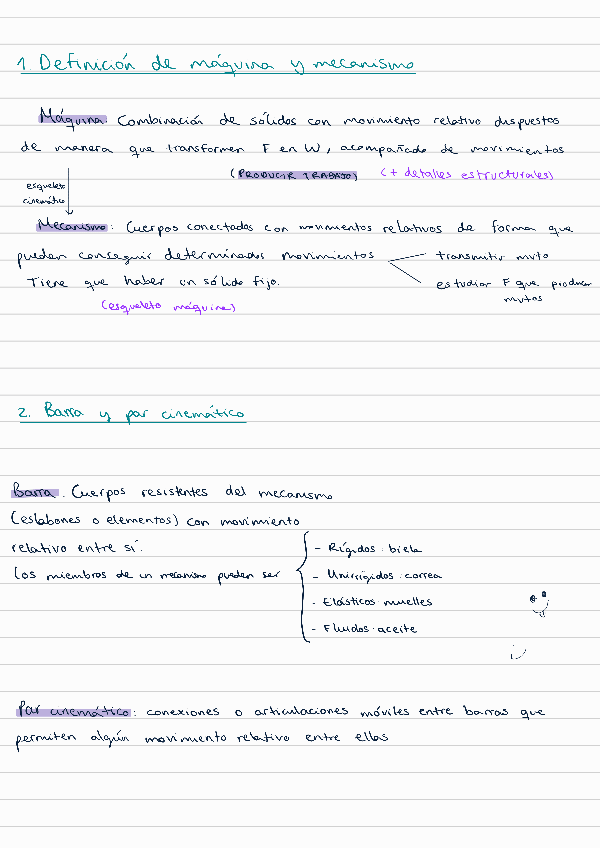 1. Definición de máquina y mecanismo
Máquina. Combinación de sólidos con movimiento relativo dispuestos
de manera que transformen F en W, acompañado de movimientos
(PRODUCIR TRABAJO) (+ detalles estructurales)
esqueleto
cinemático
Mecanismo: Cuerpos conectados con movimientos relativos de forma que
puedan conseguir determinados movimientos
transmitir mvto
Tiene que haber un sólido fijo.
estudiar F que producen
mvtos
(esqueleto máquina)
2. Barra y par cinemático
Barra. Cuerpos resistentes del mecanismo
(eslabones o elementos) con movimiento
relativo entre sí.
Los miembros de un mecanismo pueden ser
- Rígidos: biela
- Unirrígidos: correa
- Elásticos: muelles
- Fluidos: aceite
Par cinemático: conexiones o articulaciones móviles entre barras que
permiten algún movimiento relativo entre ellas